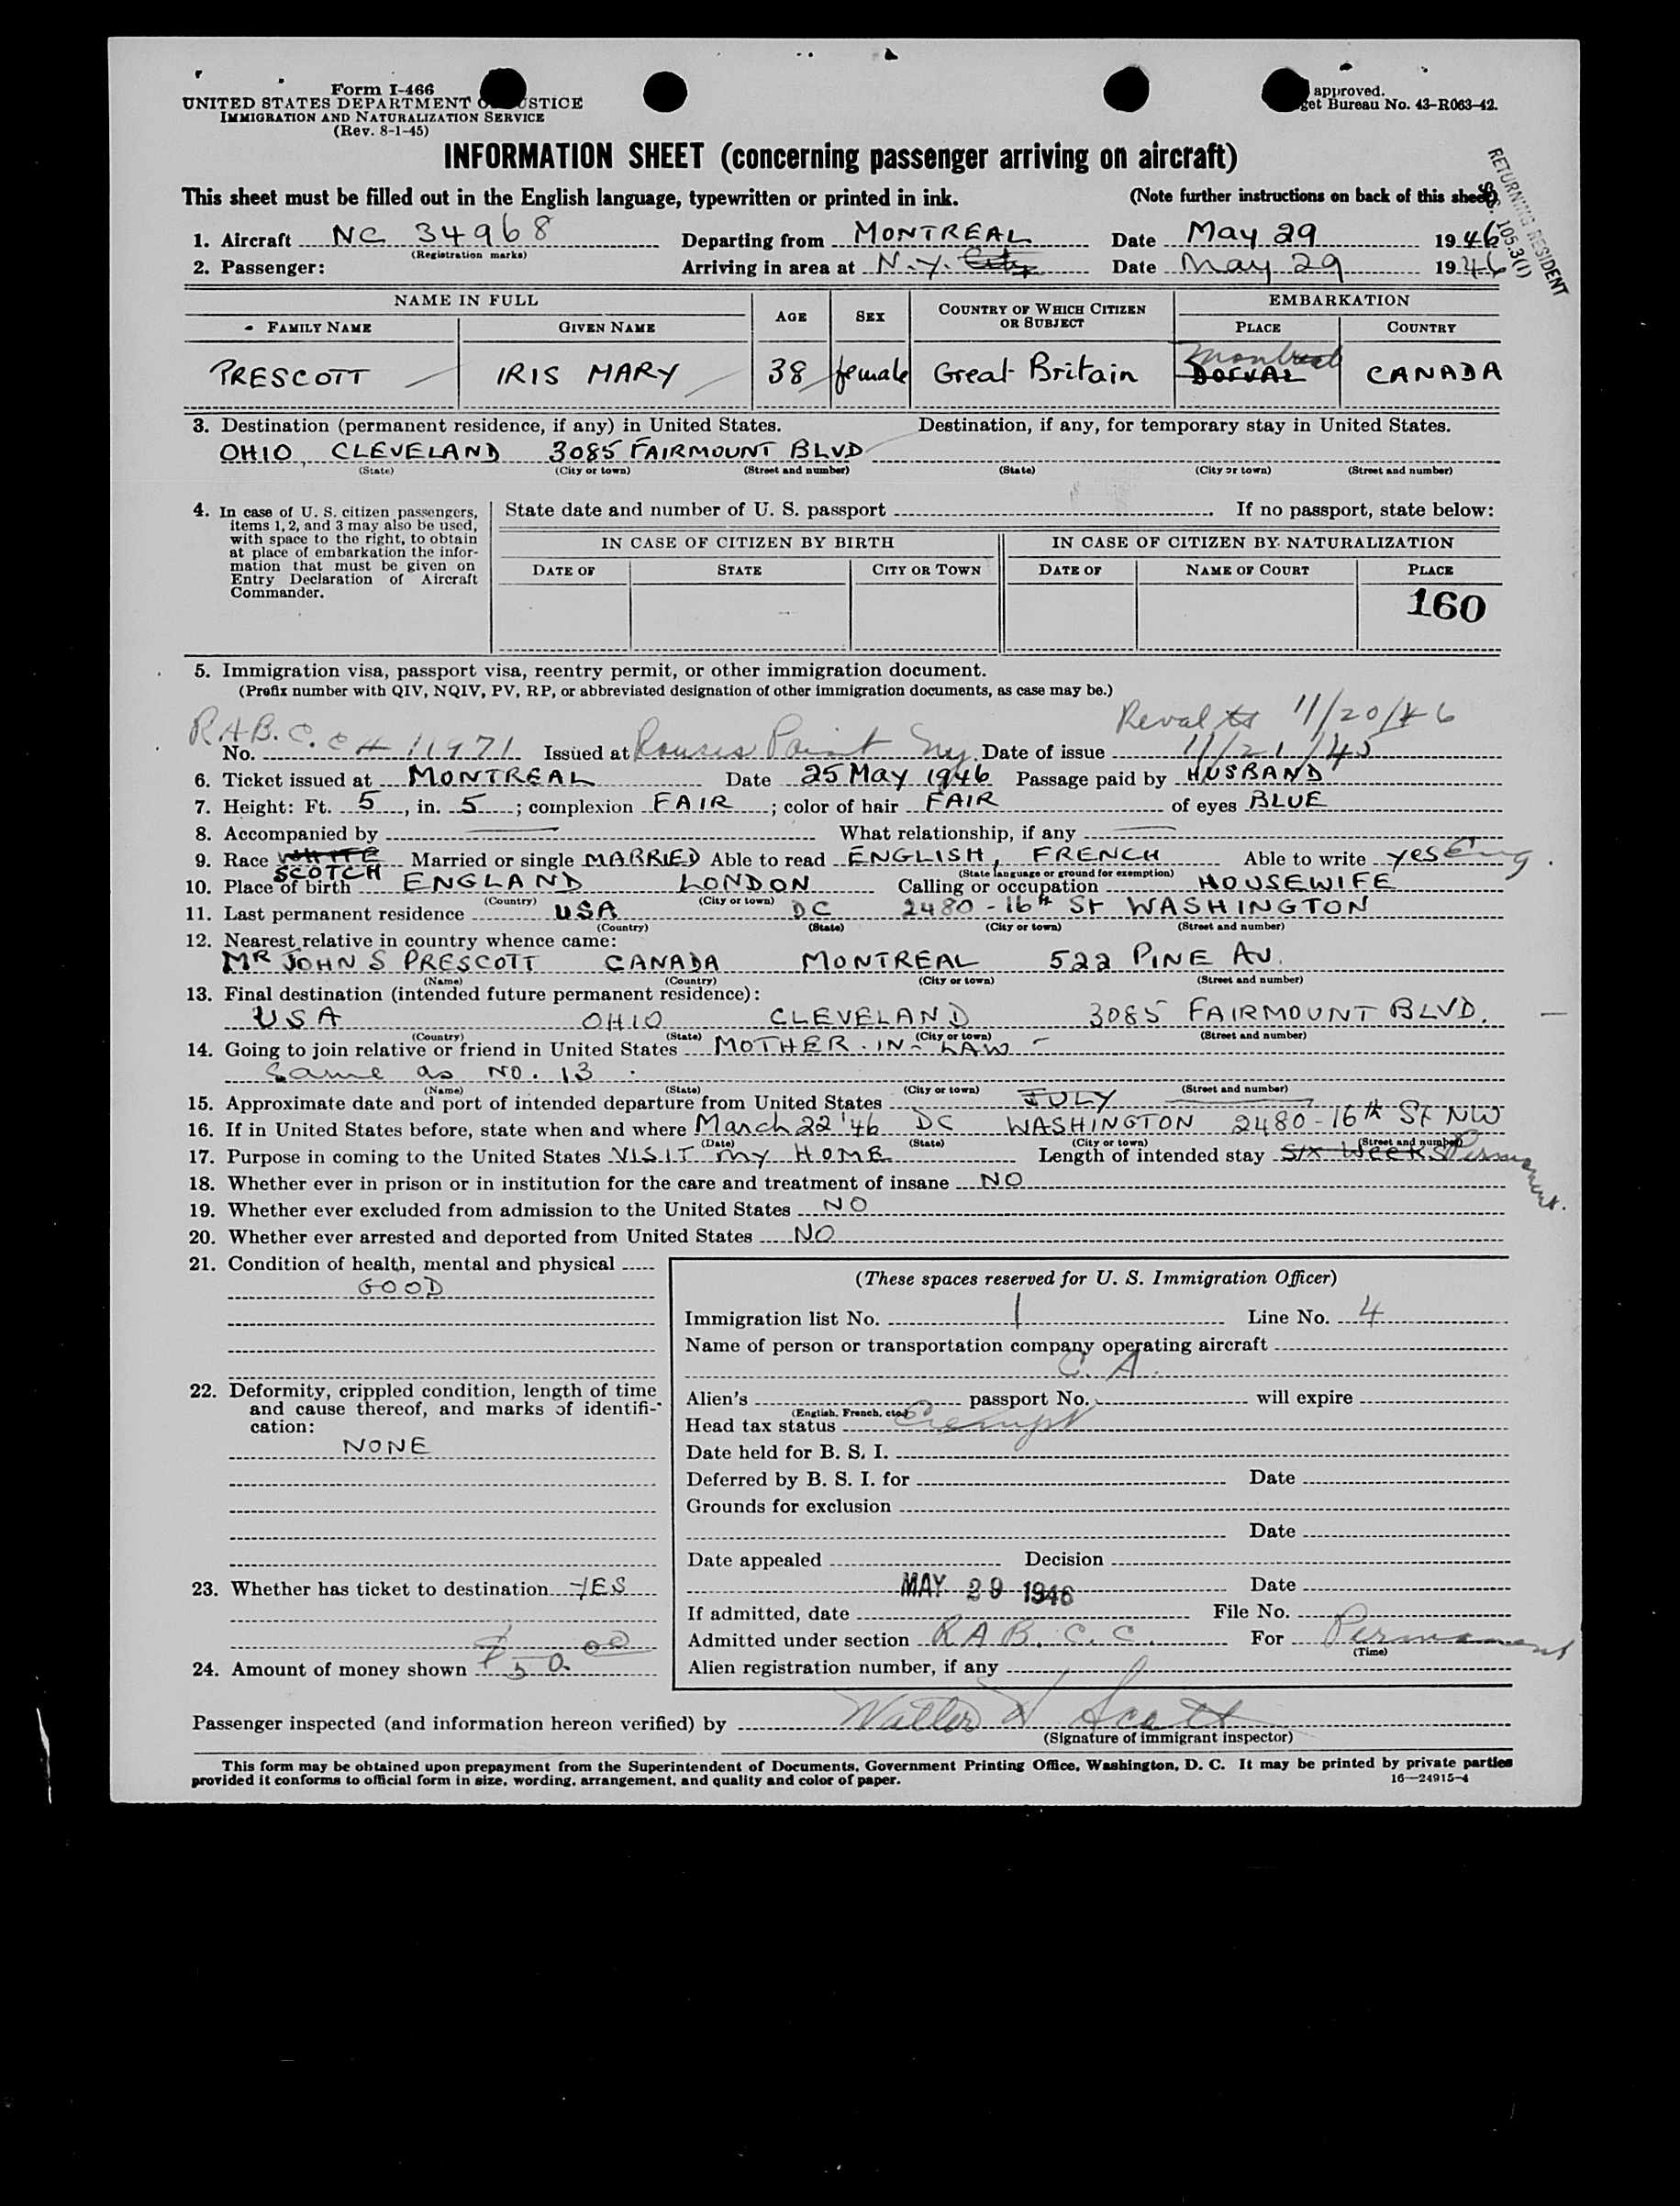 Form I-466
UNITED STATES DEPARTMENT O USTICE
IMMIGRATION AND NATURALIZATION SERVICE
(Rev. 8-1-45)
approved.
get Bureau No. 43-R063-42.
INFORMATION SHEET (concerning passenger arriving on aircraft)
This sheet must be filled out in the English language, typewritten or printed in ink. (Note further instructions on back of this sheet)
RETURNING RESIDENT
105.3(1)
1. Aircraft NC 34968 Departing from MONTREAL Date May 29 1946
(Registration marks)
2. Passenger: Arriving in area at N.Y. City Date May 29 1946
NAME IN FULL AGE SEX COUNTRY OF WHICH CITIZEN OR SUBJECT EMBARKATION
FAMILY NAME GIVEN NAME PLACE COUNTRY
Montreal
PRESCOTT IRIS MARY 38 female Great Britain DORVAL CANADA
3. Destination (permanent residence, if any) in United States. Destination, if any, for temporary stay in United States.
OHIO, CLEVELAND 3085 FAIRMOUNT BLVD
(State) (City or town) (Street and number) (State) (City or town) (Street and number)
4. In case of U. S. citizen passengers, items 1, 2, and 3 may also be used, with space to the right, to obtain at place of embarkation the information that must be given on Entry Declaration of Aircraft Commander.
State date and number of U. S. passport If no passport, state below:
IN CASE OF CITIZEN BY BIRTH IN CASE OF CITIZEN BY NATURALIZATION
DATE OF STATE CITY OR TOWN DATE OF NAME OF COURT PLACE
160
5. Immigration visa, passport visa, reentry permit, or other immigration document.
(Prefix number with QIV, NQIV, PV, RP, or abbreviated designation of other immigration documents, as case may be.)
Reval to 11/20/46
R.A.B.C.C # 11971
No. Issued at Rouses Point Ny. Date of issue 11/21/45
6. Ticket issued at MONTREAL Date 25 May 1946 Passage paid by HUSBAND
7. Height: Ft. 5, in. 5; complexion FAIR; color of hair FAIR of eyes BLUE
8. Accompanied by What relationship, if any
9. Race WHITE Married or single MARRIED Able to read ENGLISH, FRENCH Able to write yes Eng.
SCOTCH (State language or ground for exemption)
10. Place of birth ENGLAND LONDON Calling or occupation HOUSEWIFE
(Country) (City or town)
11. Last permanent residence USA DC 2480-16th St WASHINGTON
(Country) (State) (City or town) (Street and number)
12. Nearest relative in country whence came:
MR JOHN S PRESCOTT CANADA MONTREAL 522 PINE AV.
(Name) (Country) (City or town) (Street and number)
13. Final destination (intended future permanent residence):
USA OHIO CLEVELAND 3085 FAIRMOUNT BLVD.
(Country) (State) (City or town) (Street and number)
14. Going to join relative or friend in United States MOTHER-IN-LAW -
Same as NO. 13.
(Name) (State) (City or town) (Street and number)
15. Approximate date and port of intended departure from United States JULY
16. If in United States before, state when and where March 22 '46 DC WASHINGTON 2480-16th St NW
(Date) (State) (City or town) (Street and number)
17. Purpose in coming to the United States VISIT MY HOME Length of intended stay Six Weeks Permanent.
18. Whether ever in prison or in institution for the care and treatment of insane NO
19. Whether ever excluded from admission to the United States NO
20. Whether ever arrested and deported from United States NO
21. Condition of health, mental and physical
GOOD
22. Deformity, crippled condition, length of time and cause thereof, and marks of identification:
NONE
23. Whether has ticket to destination YES
24. Amount of money shown $50.00
(These spaces reserved for U. S. Immigration Officer)
Immigration list No. 1 Line No. 4
Name of person or transportation company operating aircraft
C. A.
Alien's passport No. will expire
(English, French, etc.)
Head tax status Exempt
Date held for B. S. I.
Deferred by B. S. I. for Date
Grounds for exclusion
Date
Date appealed Decision
MAY 29 1946 Date
If admitted, date File No.
Admitted under section R A B. C. C. For Permanent
(Time)
Alien registration number, if any
Passenger inspected (and information hereon verified) by Walter Scott
(Signature of immigrant inspector)
This form may be obtained upon prepayment from the Superintendent of Documents, Government Printing Office, Washington, D. C. It may be printed by private parties
provided it conforms to official form in size, wording, arrangement, and quality and color of paper. 16—24915-4